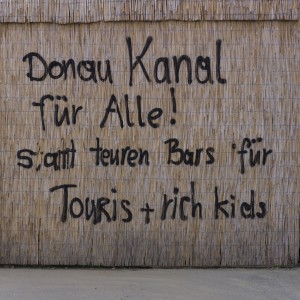 Donau Kanal
für Alle!
statt teuren Bars für
Touris + rich kids